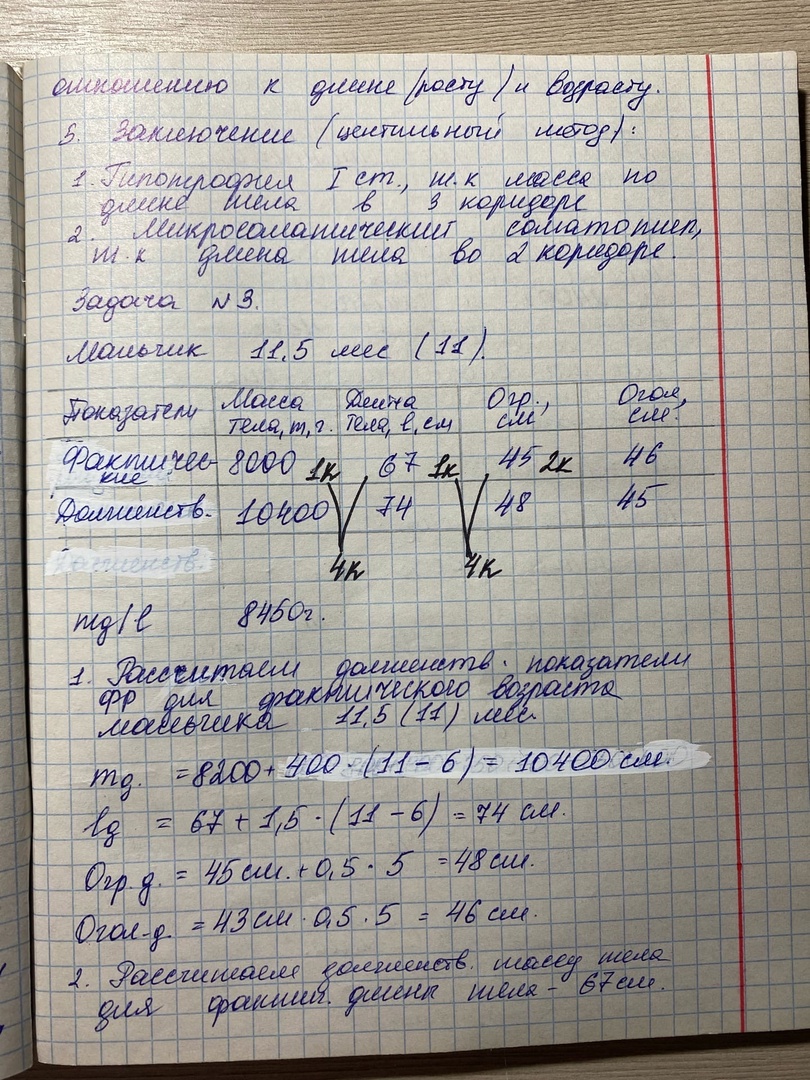 отношению к длине (росту) и возрасту.
5. Заключение (центильный метод):
1. Гипотрофия I ст., т.к масса по
длине тела в 3 коридоре
2. Микросоматический соматотип,
т.к длина тела во 2 коридоре.
Задача №3.
Мальчик 11,5 мес (11).
Показатели Масса тела, m, г. Длина тела, l, см Огр., см Огол, см.
Фактические 8000 1к 67 1к 45 2к 46
Долженств. 10400 74 48 45
4к 4к
mд/l 8450г.
1. Рассчитаем долженств. показатели
ФР для фактического возраста
мальчика 11,5 (11) мес.
mд. = 8200 + 400 · (11 – 6) = 10400 см.
lд = 67 + 1,5 · (11 – 6) = 74 см.
Огр.д. = 45см. + 0,5 · 5 = 48см.
Огол-д. = 43см · 0,5 · 5 = 46 см.
2. Рассчитаем долженств. массу тела
для фактич. длины тела – 67см.